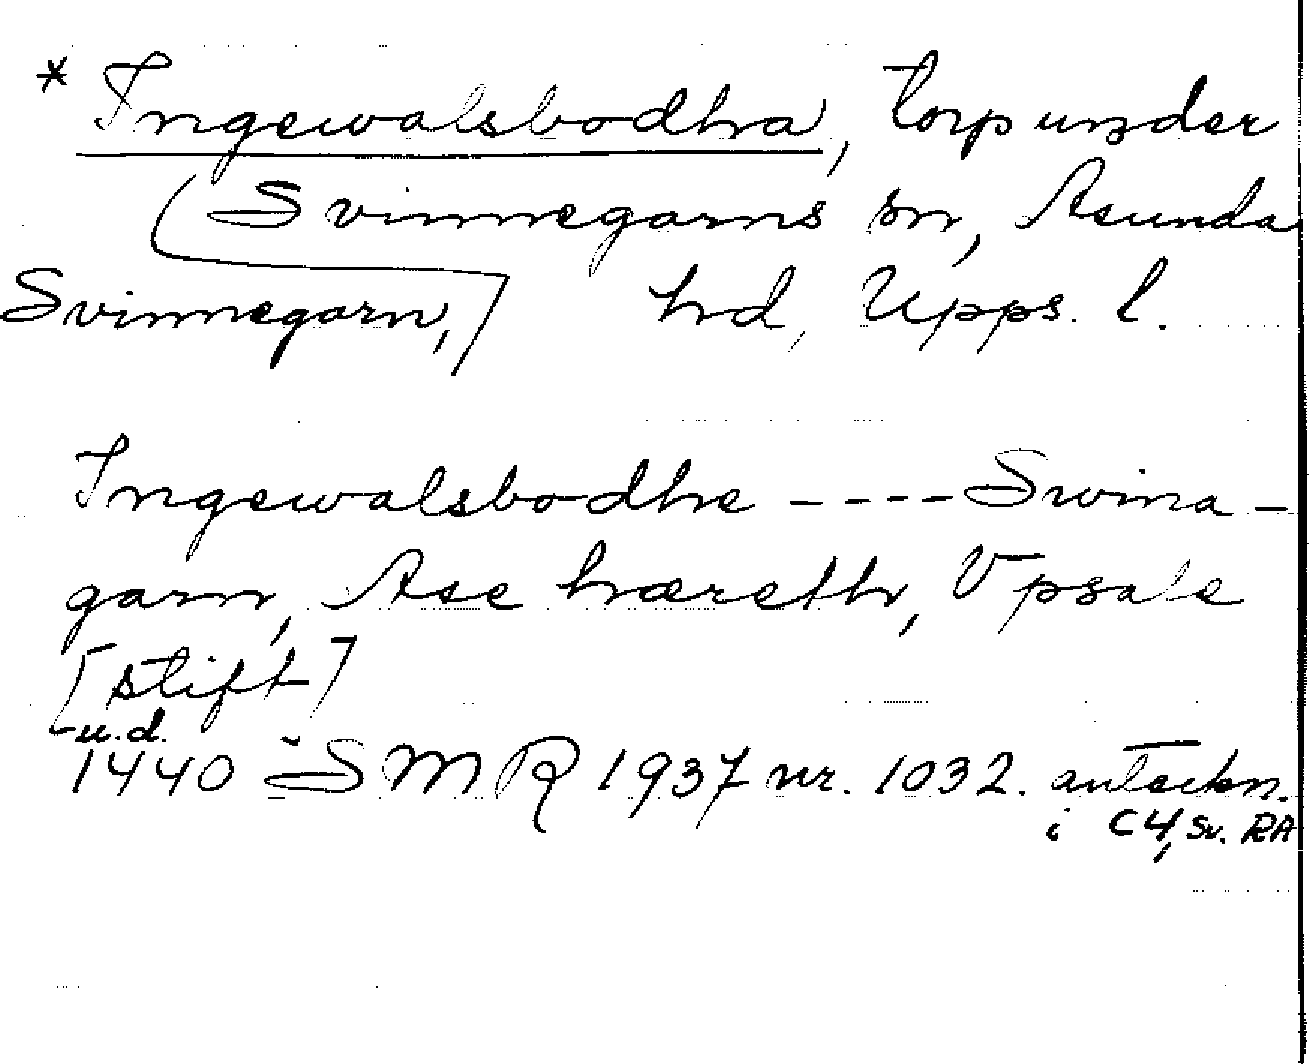 * Ingewalsbodha, torp under
Svinnegarns sn, Asunda
Svinnegarn, hd, Upps. l.
Ingewalsbodhe ---- Swina-
garn, Ase hæreth, Vpsale
[stift]
u.d.
1440 SMR 1937 nr. 1032. anteckn.
i C4, Sv. RA